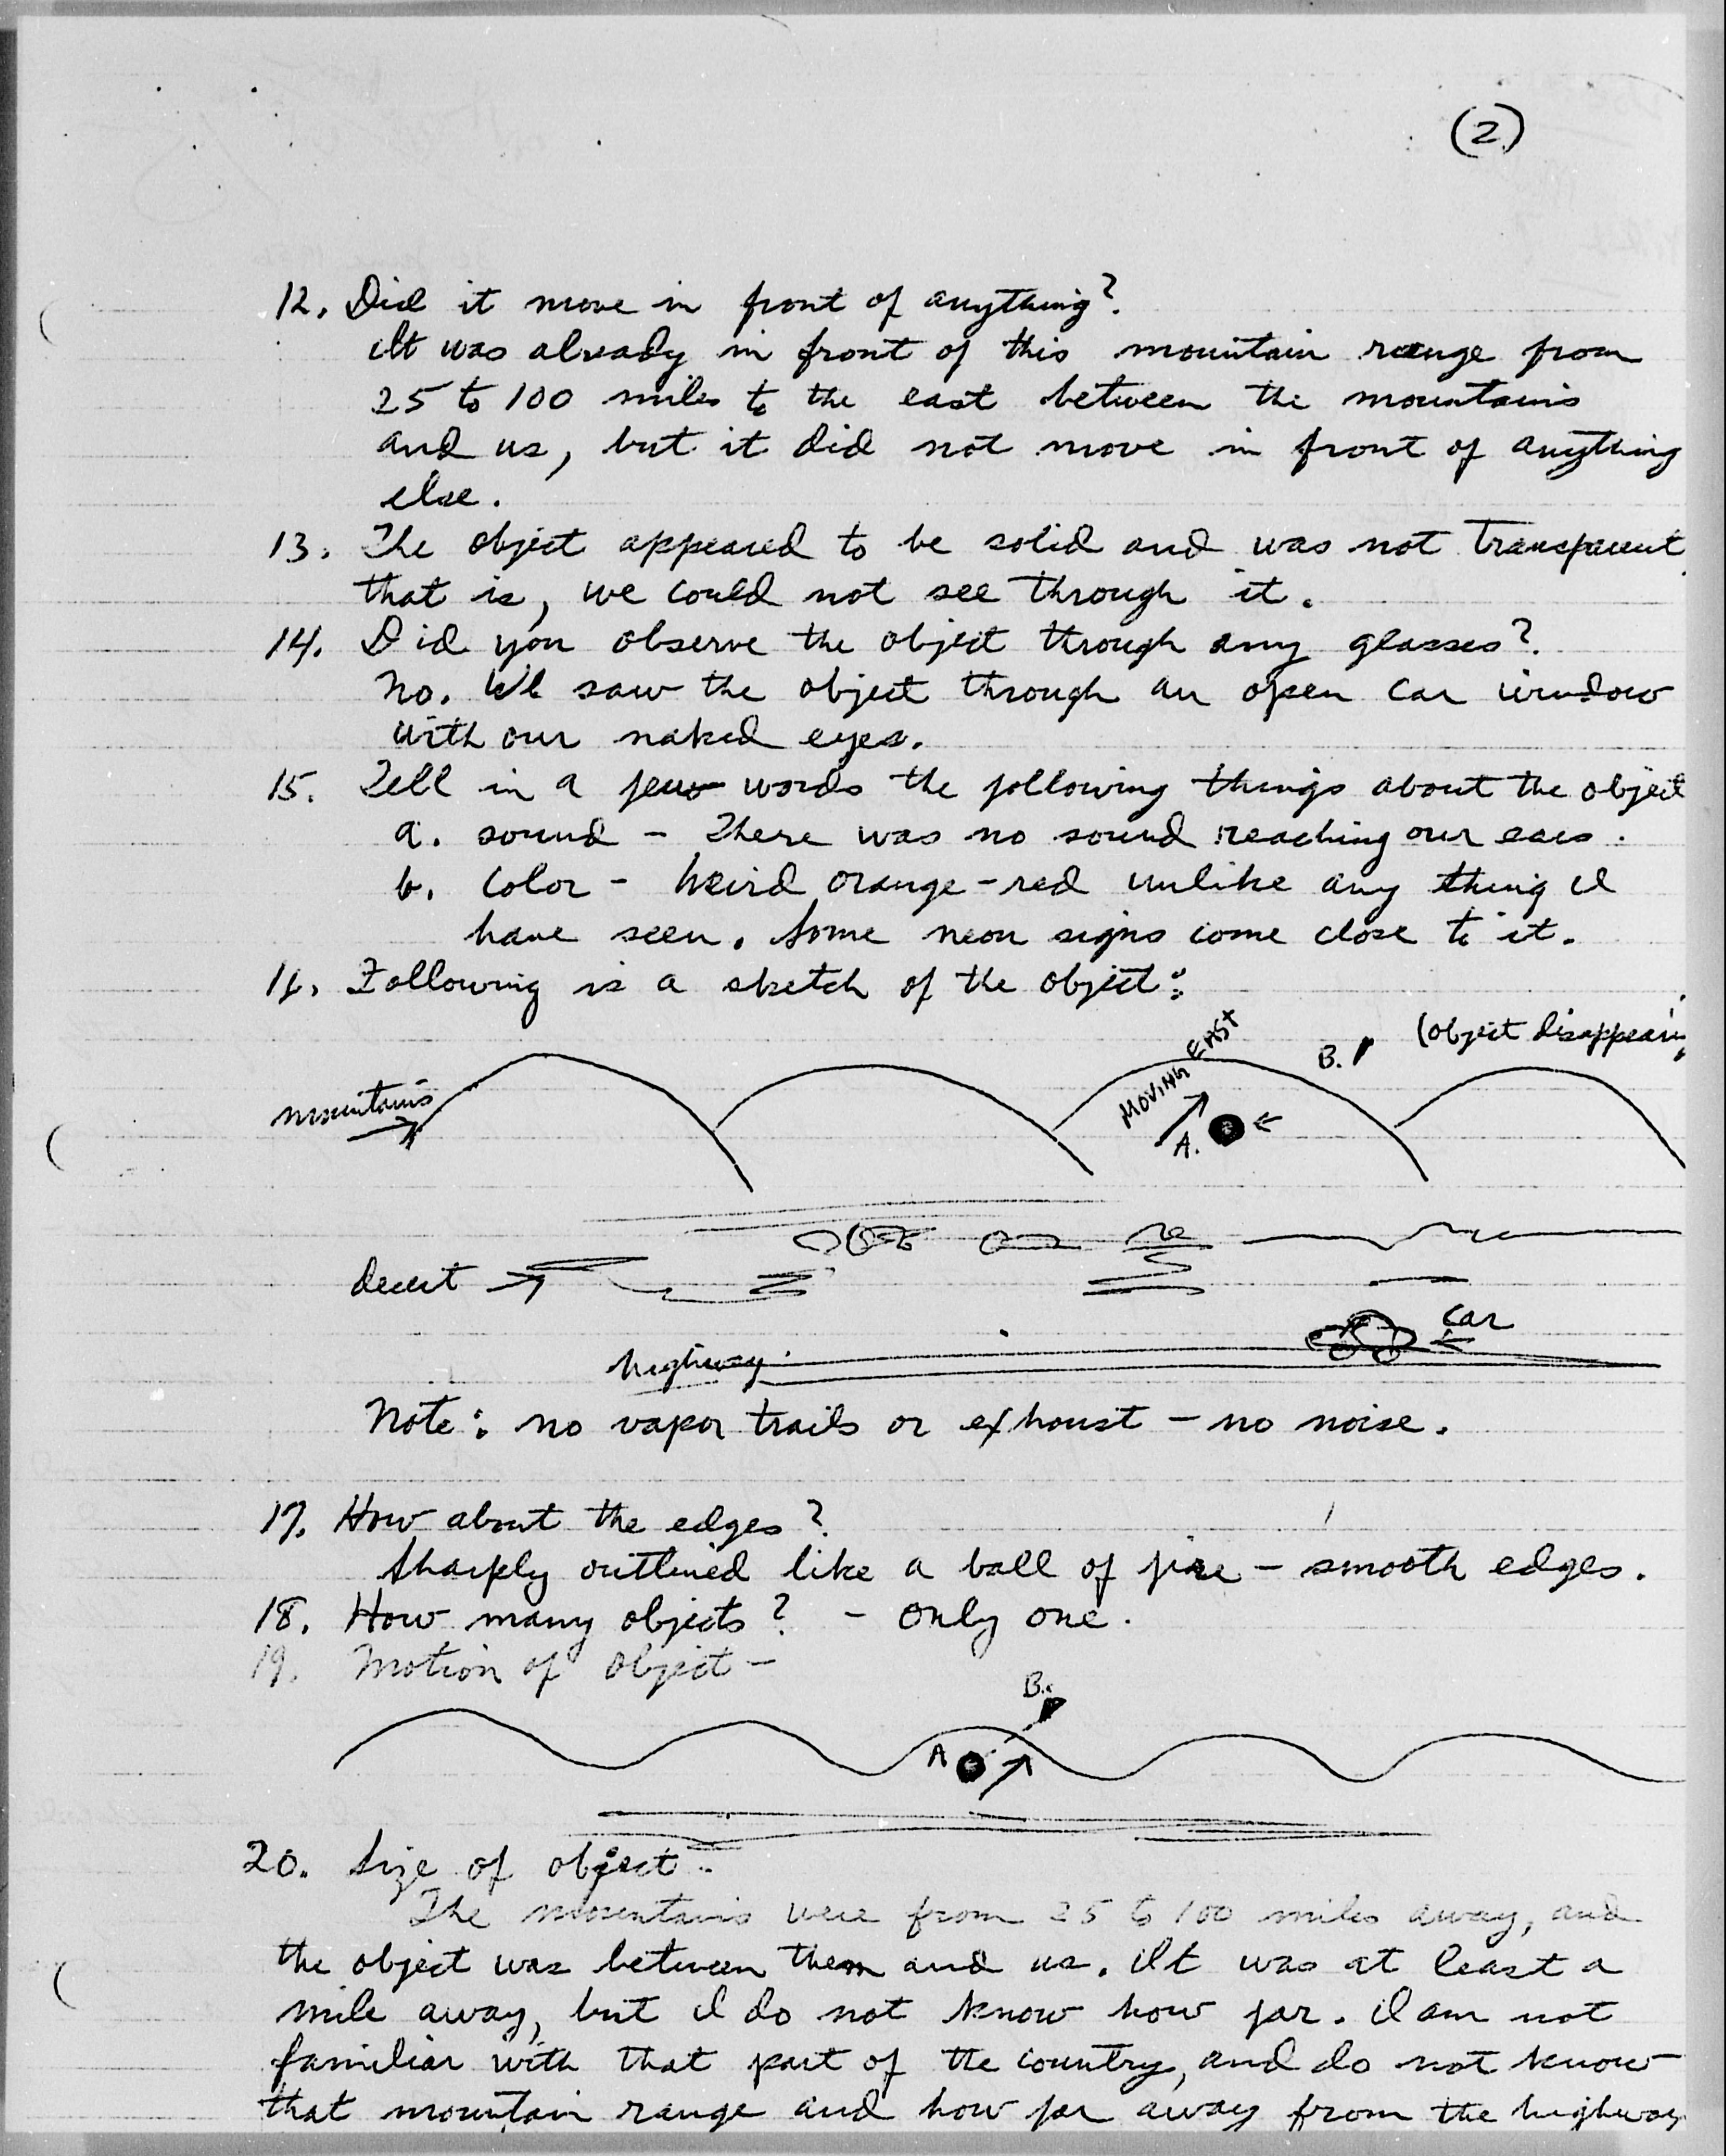 (2)
12. Did it move in front of anything?
It was already in front of this mountain range from
25 to 100 miles to the east between the mountains
and us, but it did not move in front of anything
else.
13. The object appeared to be solid and was not transparent
that is, we could not see through it.
14. Did you observe the object through any glasses?
No. We saw the object through an open car window
with our naked eyes.
15. Tell in a few words the following things about the object
a. sound - There was no sound reaching our ears.
b. color - Weird orange-red unlike any thing I
have seen. Some neon signs come close to it.
16. Following is a sketch of the object:
(object disappearing
MOVING EAST
B.
mountains
A.
desert
car
highway
Note: no vapor trails or exhoust - no noise.
17. How about the edges?
Sharply outlined like a ball of fire - smooth edges.
18. How many objects? - only one.
19. Motion of object -
B.
A
20. Size of object -
The mountains were from 25 to 100 miles away, and
the object was between them and us. It was at least a
mile away, but I do not know how far. I am not
familiar with that part of the country, and do not know
that mountain range and how far away from the highway